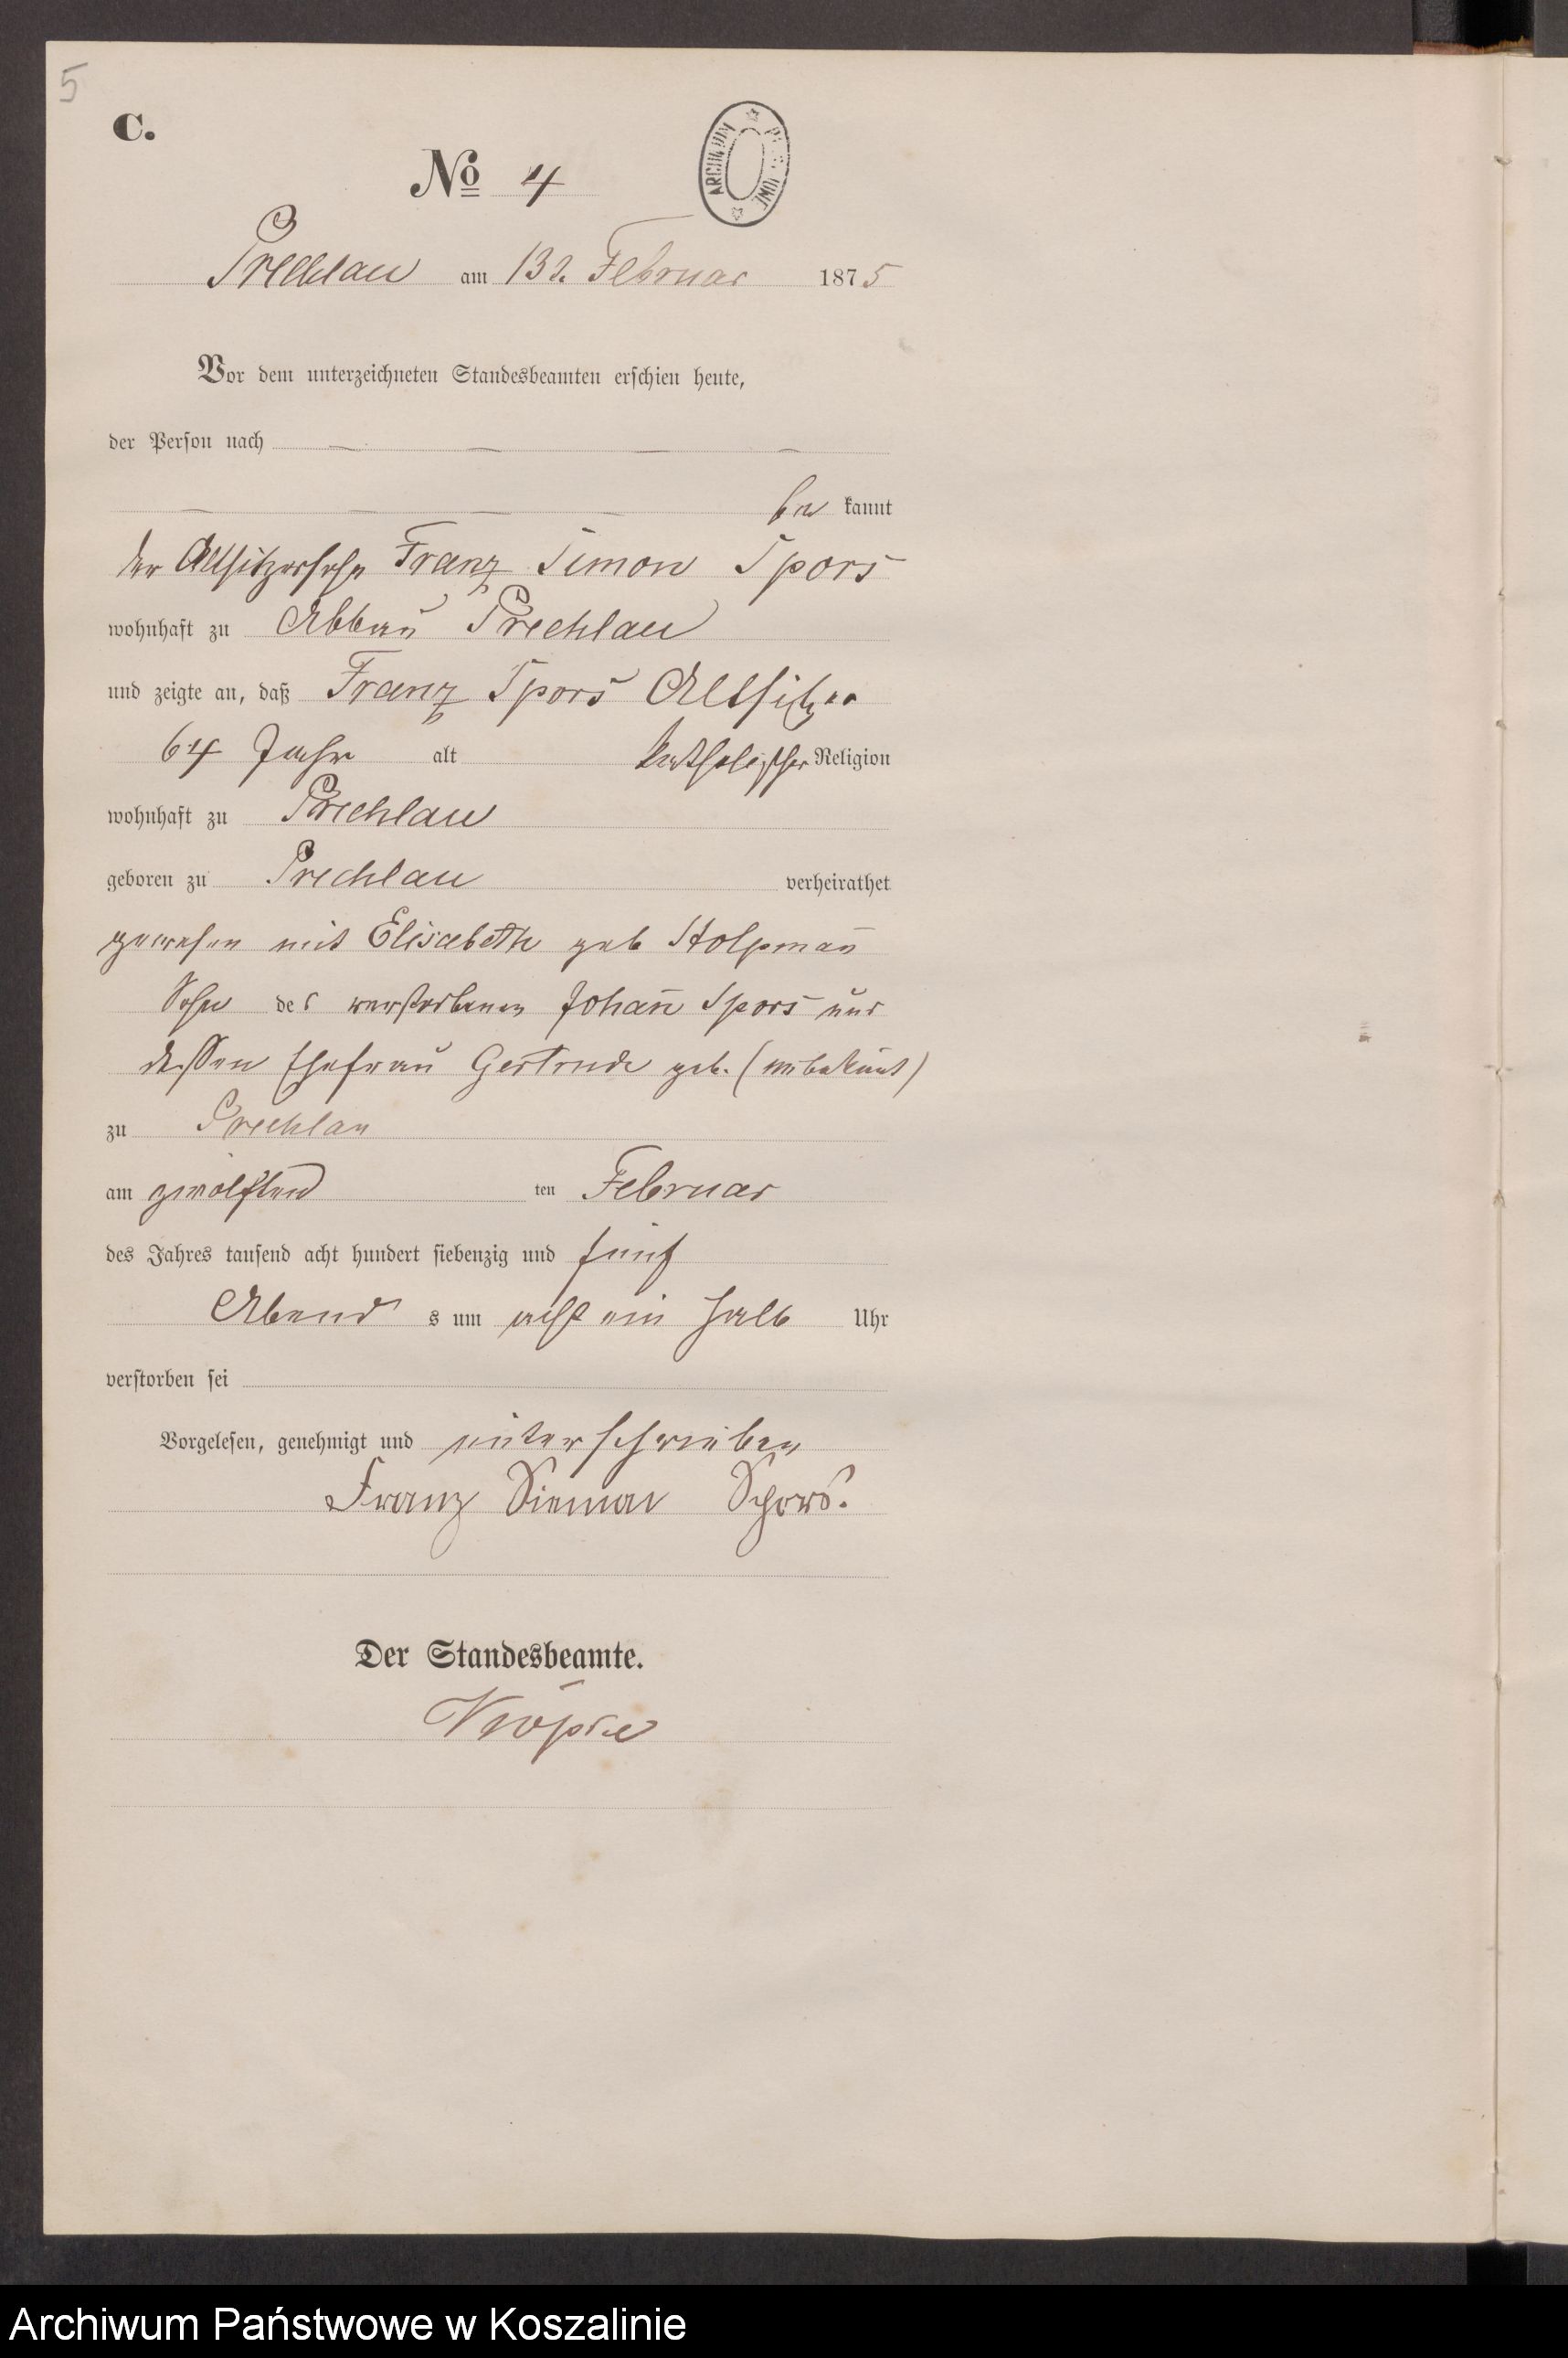 5
C.
No 4
ARCHIWUM PAŃSTWOWE
Prechlau am 13t. Februar 1875
Vor dem unterzeichneten Standesbeamten erschien heute,
der Person nach
be kannt
der Altsitzersohn Franz Simon Spors
wohnhaft zu Abbau Prechlau
und zeigte an, daß Franz Spors Altsitzer
64 Jahr alt katholischer Religion
wohnhaft zu Prechlau
geboren zu Prechlau verheirathet
gewesen mit Elisabeth geb Stolpman̄
Sohn des verstorbenen Johan̄ Spors und
dessen Ehefrau Gertrude geb. (unbekan̄t)
zu Prechlau
am zwölften ten Februar
des Jahres tausend acht hundert siebenzig und fünf
Abend s um acht ein halb Uhr
verstorben sei
Vorgelesen, genehmigt und unterschrieben
Franz Siemon Spors.
Der Standesbeamte.
Archiwum Państwowe w Koszalinie